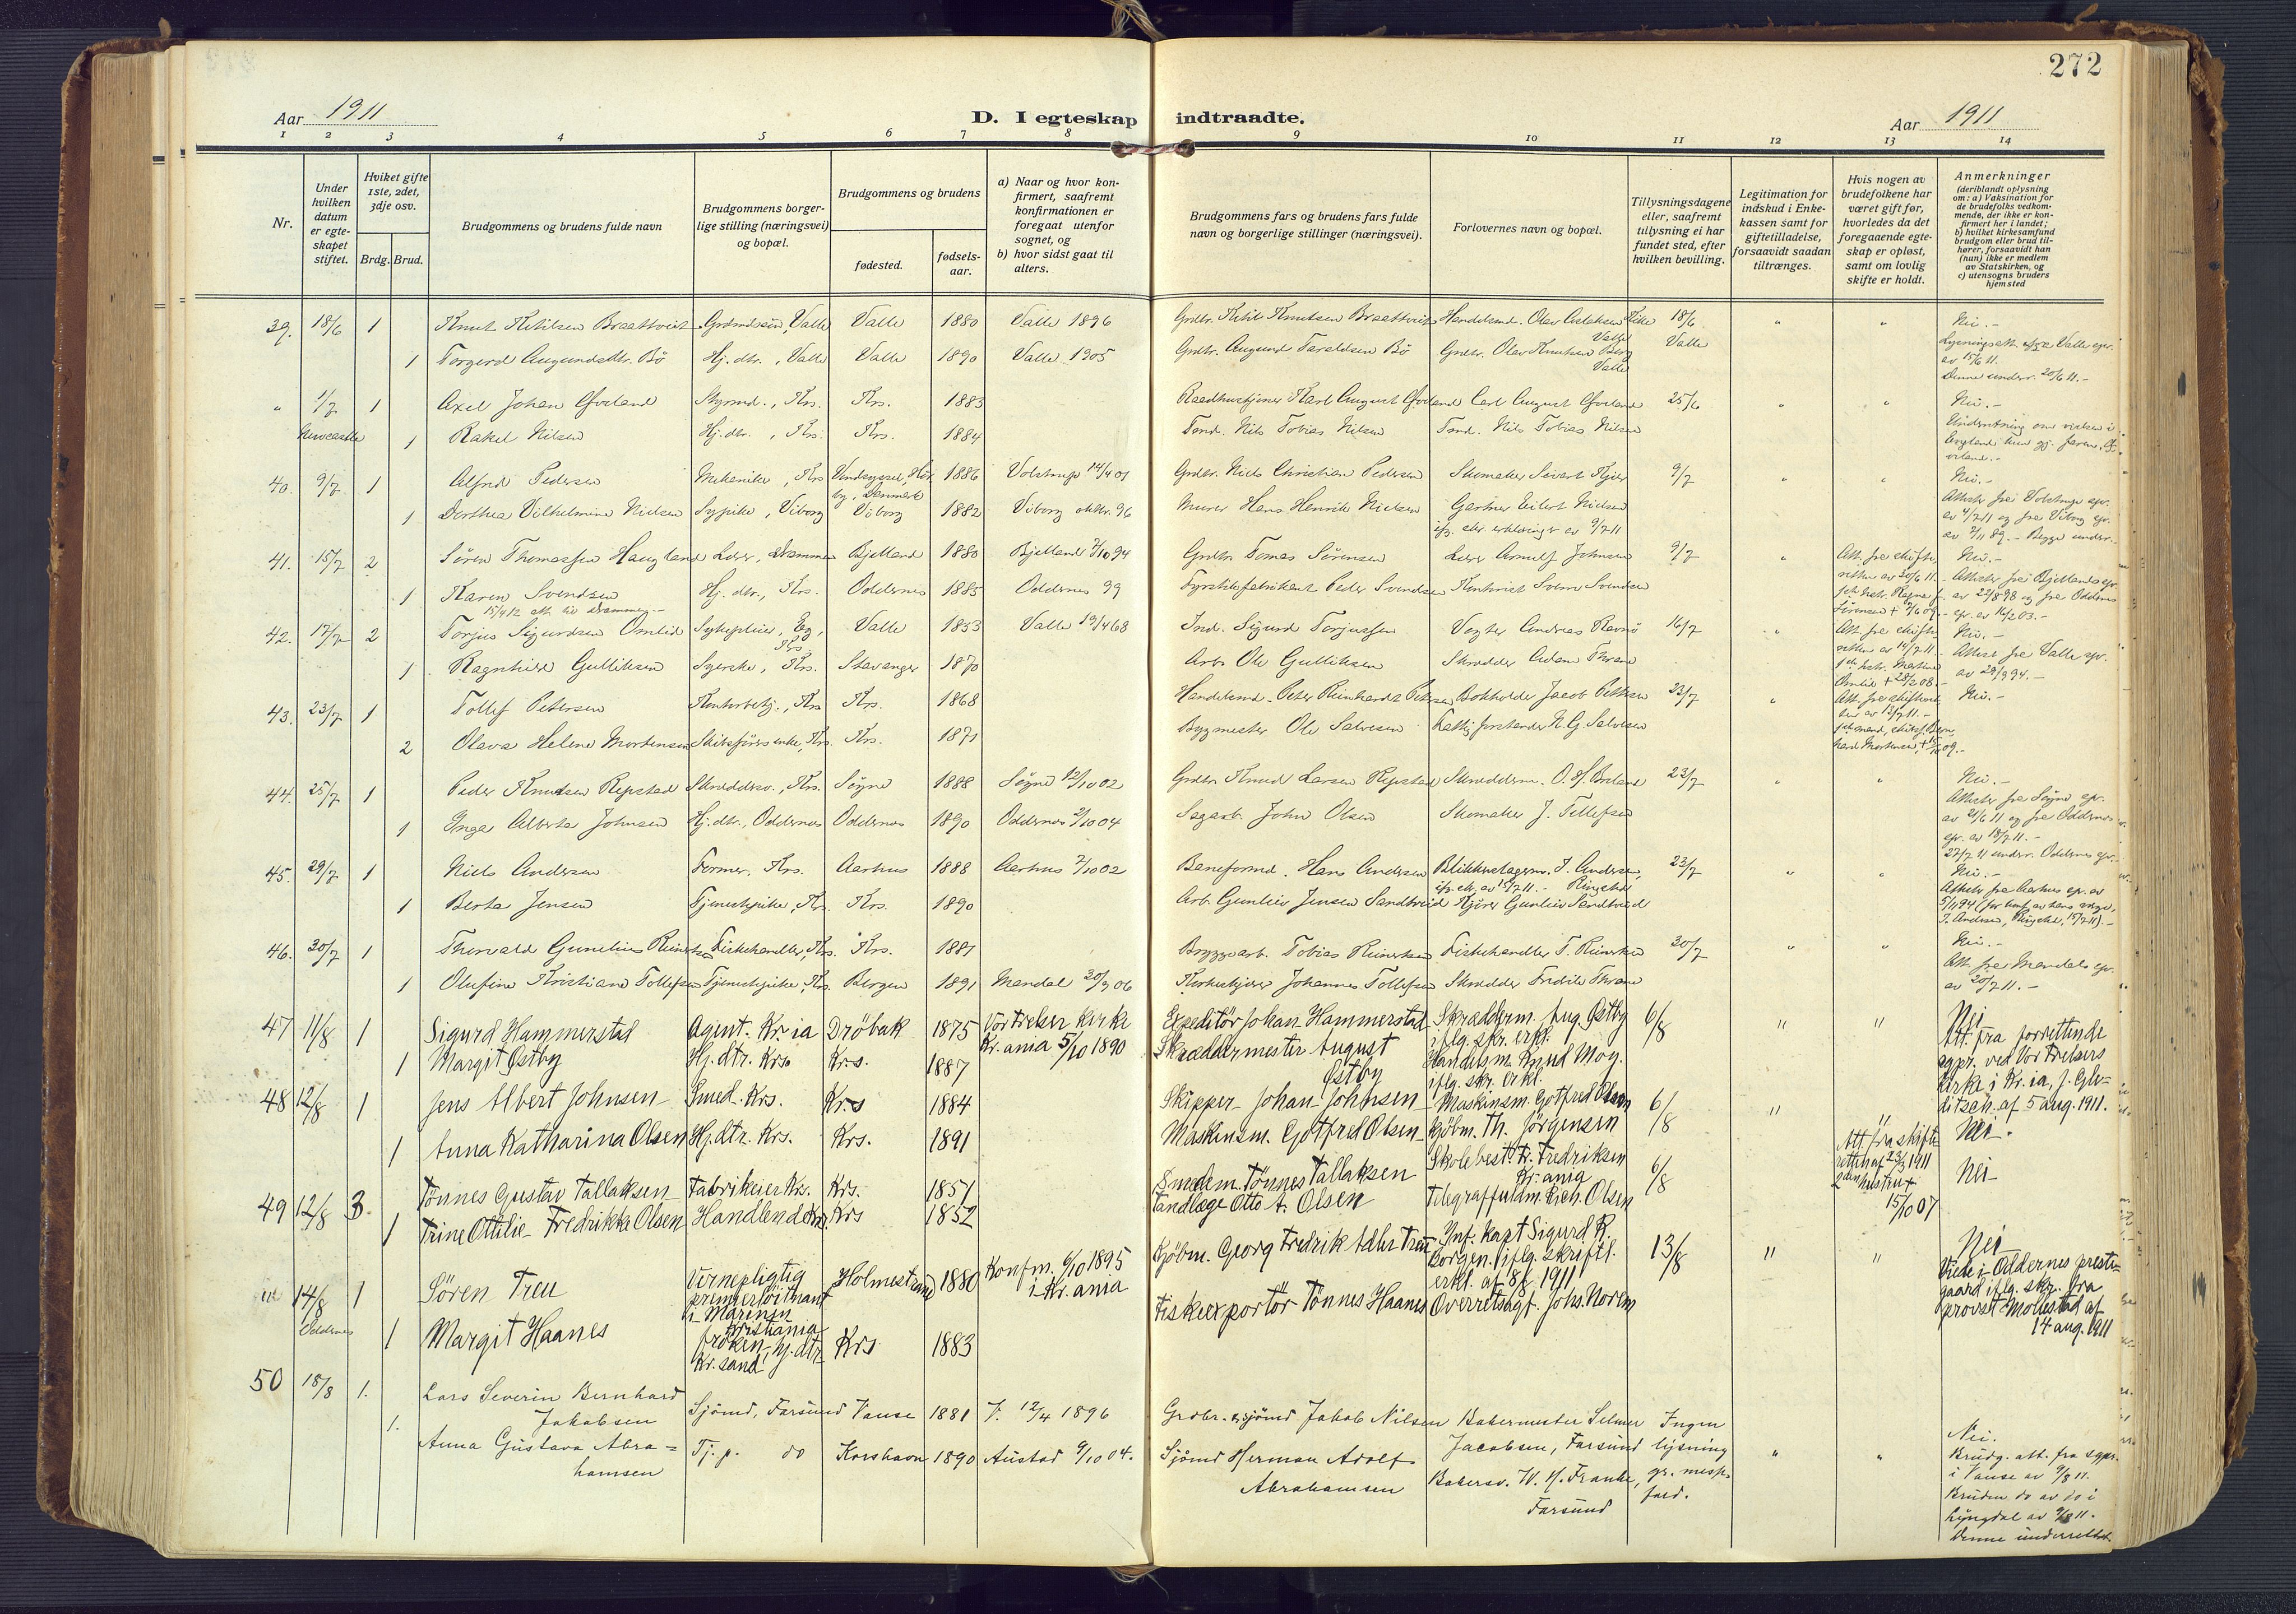 272
Aar 1911
D. I egteskap indtraadte.
Aar 1911
1 2 3 4 5 6 7 8 9 10 11 12 13 14
Nr.
Under hvilken datum er egteskapet stiftet.
Hviket gifte 1ste, 2det, 3dje osv.
Brdg. Brud.
Brudgommens og brudens fulde navn
Brudgommens borgerlige stilling (næringsvei) og bopæl.
Brudgommens og brudens
fødested.
fødselsaar.
a) Naar og hvor konfirmert, saafremt konfirmationen er foregaat utenfor sognet, og
b) hvor sidst gaat til alters.
Brudgommens fars og brudens fars fulde navn og borgerlige stillinger (næringsvei).
Forlovernes navn og bopæl.
Tillysningsdagene eller, saafremt tillysning ei har fundet sted, efter hvilken bevilling.
Legitimation for indskud i Enkekassen samt for giftetilladelse, forsaavidt saadan tiltrænges.
Hvis nogen av brudefolkene har været gift før, hvorledes da det foregaaende egteskap er opløst, samt om lovlig skifte er holdt.
Anmerkninger
(deriblandt oplysning om: a) Vaksination for de brudefolks vedkommende, der ikke er konfirmert her i landet; b) hvilket kirkesamfund brudgom eller brud tilhører, forsaavidt han (hun) ikke er medlem av Statskirken, og c) utensogns bruders hjemsted
39. 18/6 1 Knut Ketilsen Braattveit Valle Valle 1880 Valle 1896 Grdbr. Ketil Knutsen Braattveit Handelsmd. Olav Aslaksen Valle 18/6 " " Nei.-
1 Torgerd Augundsdtr. Bø Hj. dtr., Valle Valle 1890 Valle 1905 Grdbr. Augund Taraldsen Bø Grdbr. Olav Knutsen Berg Valle Valle
av 15/6 11.
Denne underr. 20/6 11.-
" 1/7 1 Axel Johan Øveland Styrmd., Krs. Krs. 1883 Raadhustjener Karl August Øveland Carl August Øveland 25/6 " " Nei.-
Newcastle 1 Rakel Nilsen Hj. dtr., Krs. Krs. 1884 Tømd. Nils Tobias Nilsen Tømd. Nils Tobias Nilsen
40. 9/7 1 Alfred Pedersen Mekaniker, Krs Danmark 1886 Volstrup 14/4 01 Grdbr. Niels Christian Pedersen Skomaker Sivert Kjær 9/7 " " Nei.-
1 Dorthea Vilhelmine Nielsen Sypike, Viborg Viborg 1882 Viborg oktbr. 96 Murer Hans Henrik Nielsen Gartner Eilert Nielsen
ifg. skr. erklæringer av 9/7 11
41. 15/7 2 Søren Thomassen Haugland Lærer, Drammen Bjelland 1880 Bjelland 2/10 94 Grdbr. Tomas Sørensen Lærer Arnulf Johnsen 9/7 " Att. fra skifteretten av 20/6 11.- Nei.-
1 Karen Svendsen Hj. dtr., Krs. Oddernes 1885 Oddernes 99 Fyrstikfabrikant Peder Svendsen Kontorist Sverre Svendsen
15/4 12 att. til Drammen.-
42. 17/7 2 Torjus Sigurdsen Omlid Sykepleier, Eg, Krs. Valle 1853 Valle 19/4 68 Ind. Sigurd Torjussen Vogter Andreas Ravnø 16/7 " Att. fra skifteretten av 14/7 11.- Nei.-
1 Ragnhild Gulliksen Syerske, Krs. Stavanger 1870 Arb. Ole Gulliksen Skrædder Adam Thrane Omlid + 28/2 08.- Attest fra Valle spr. av 29/9 94.-
43. 23/7 1 Tollef Petersen Kontorbetj., Krs Krs. 1868 Handelsmd. Peter Reinhardt Petersen Bokholder Jacob Pettersen 23/7 " Att. fra skifteretten av 13/7 11.- Nei.-
2 Olava Helene Mortensen Skibsførers enke, Krs. Krs. 1871 Bygmester Ole Salvesen Fattigforstander N. G. Salvesen
44. 25/7 1 Peder Knudsen Repstad Skræddersv., Krs. Søgne 1888 Søgne 12/10 02 Grdbr. Knud Larsen Repstad Skrædderm. O. H. Birkeland 23/7 " " Nei.-
1 Inga Alberta Johnsen Hj. dtr., Oddernes Oddernes 1890 Oddernes 2/10 04 Sagarb. John Olsen Skomaker J. Tellefsen
Attester fra Søgne spr. av 21/6 11 og fra Oddernes spr. av 18/7 11.-
27/7 11 underr. Oddernes spr.
45. 29/7 1 Niels Andersen Former, Krs. Aarhus 1888 Aarhus 7/10 02 Baneformd. Hans Andersen Blikkenslagerm. J. Andersen, 23/7 " " Nei.-
1 Berta Jensen Tjenestepike, Krs. Krs. 1890 Arb. Gunleiv Jensen Sandtveid Kjører Gunleiv Sandtveid
46. 30/7 1 Thorvald Gunelius Reinertsen Fiskehandler, Krs. Krs. 1881 Bryggearb. Tobias Reinertsen Fiskehandler T. Reinertsen 30/7 " " Nei.-
1 Olufine Kristiane Tollefsen Tjenestepike, Krs. Bergen 1891 Mandal 30/9 06 Kirketjener Johannes Tollefsen Skrædder Fredrik Thrane Att. fra Mandals spr. av 20/7 11.-
47 11/8 1 Sigurd Hammerstad Agent. Kr.ia Dröbak 1875 Vor Frelser Kirke Kr.ania 5/10 1890 Expeditör Johan Hammerstad Skrædderm. Aug. Østby iflg. skr. erkl. 6/8 " " Nei
1 Margit Østby Hj. dtr. Krs. Krs. 1887 Skræddermester August Østby Handelsm. Knud Moy. iflg. skr. erkl. Att. fra forrettende sgpr. ved Vor Frelsers Kirke i Kr.ia, J. Gleditsch af 5 aug. 1911.
48 12/8 1 Jens Albert Johnsen Smed. Krs. Kr.s 1884 Skipper Johan Johnsen Maskinsm. Gotfred Olsen 6/8 " " Nei.
1 Anna Katharina Olsen Hj. dtr. Krs. Krs. 1891 Maskinsm. Gotfred Olsen Kjöbm. Th. Jörgensen
49 12/8 3. Tønnes Gustav Tallaksen Fabrikeier Krs. Krs. 1851 Smedem. Tönnes Tallaksen Skolebest. Fr. Fredriksen Kr.ania 6/8 Att. fra skifteretten af 23/3 1911 Nei
1 Trine Ottilie Fredrikke Olsen Handlende Krs 1852 Tandlæge Otto A. Olsen Telegraffuldm. Rich. Olsen 2den hustru + 15/10 07
14/8 1 Sören Treu Vernepligtig premierløitnant i Marinen Kristiania Holmestrand 1880 Konfm. 6/10 1895 i Kr.ania Kjöbm. Georg Fredrik Adler Treu Inf. kapt Sigurd R. Borgen. iflg. skriftl. erkl. af 8/8 1911 13/8 " " Nei
Oddernes 1 Margit Haanes fröken, hj. dtr Kr.sand Krs 1883 Fiskeexportör Tönnes Haanes Overretssagf. Johs. Norem Viede i Oddernes prestegaard iflg. skr. fra provst Mollestad af 14 aug. 1911
50 18/8 1. Lars Severin Bernhard Jakobsen Sjømd, Farsund Vanse 1881 V. 12/4 1896 Grdbr. & sjømd Jakob Nilsen Bakermester Selmer Jacobsen, Farsund Ingen lysning
1. Anna Gustava Abrahamsen Tj. p. do Korshavn 1890 Austad 9/10 04. Sjømd Herman Adolf Abrahamsen Bakersv. W. H. Franke, Farsund " " Nei.
Brudg. att. fra sgpr. i Vanse av 9/8 11.
Bruden do av do i Lyngdal av 9/8 11.
Denne underrettet